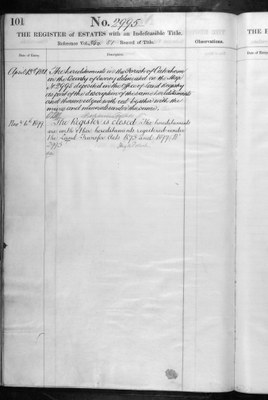 101
No. 2995
THE REGISTER of ESTATES with an Indefeasible Title.
Reference Vol. Record of Title.
Observations.
Date of Entry.
Description.
April 13th 1882 The hereditaments in the Parish of Caterham
in the County of Surrey delineated on the Map
No 2995 deposited in the Office of Land Registry
as part of the description of the same hereditaments
and thereon edged with red together with the
mines and minerals under the same
Nov 4th 1899 The Register is closed. The hereditaments
are now hereditaments registered under
the Land Transfer Acts 1875 and 1897. No
2995
THE R